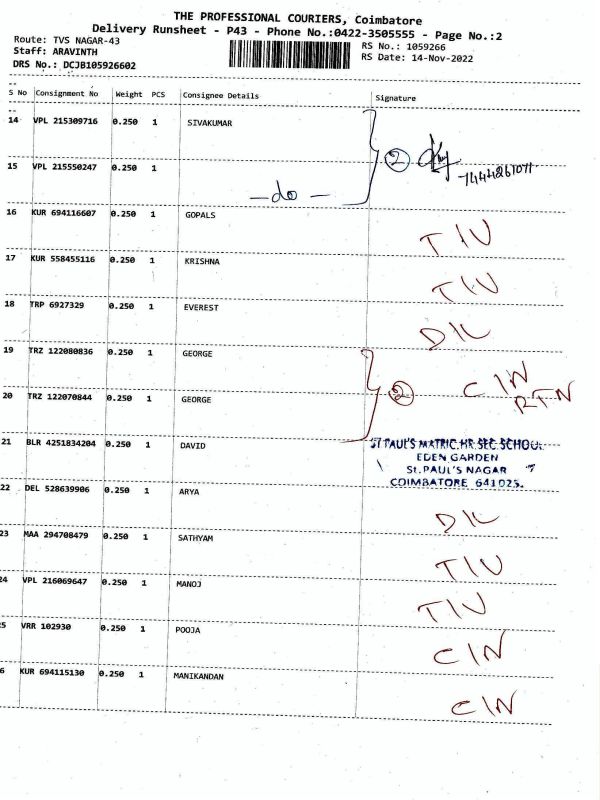 THE PROFESSIONAL COURIERS, Coimbatore
Delivery Runsheet - P43 - Phone No.:0422-3505555 - Page No.:2
Route: TVS NAGAR-43 RS No.: 1059266
Staff: ARAVINTH RS Date: 14-Nov-2022
DRS No.: DCJB105926602
S No Consignment No Weight PCS Consignee Details Signature
14 VPL 215309716 0.250 1 SIVAKUMAR
②
15 VPL 215550247 0.250 1 —do—
16 KUR 694116607 0.250 1 GOPALS TIU
17 KUR 558455116 0.250 1 KRISHNA TIU
18 TRP 6927329 0.250 1 EVEREST DIL
19 TRZ 122080836 0.250 1 GEORGE CIN
② RTN
20 TRZ 122070844 0.250 1 GEORGE
21 BLR 4251834204 0.250 1 DAVID ST PAUL'S MATRIC.HR.SEC.SCHOOL
EDEN GARDEN
St.PAUL'S NAGAR
COIMBATORE 641025.
22 DEL 528639906 0.250 1 ARYA DIL
23 MAA 294708479 0.250 1 SATHYAM TIU
24 VPL 216069647 0.250 1 MANOJ TIU
5 VRR 102930 0.250 1 POOJA CIN
6 KUR 694115130 0.250 1 MANIKANDAN CIN